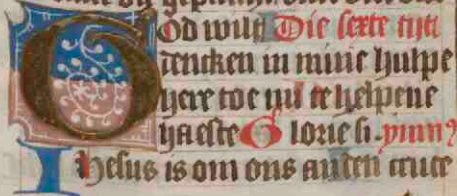 God wilt Die sexte tijt
dencken in mine hulpe
here toe mi te helpene
haeste Glorie si. ymnꝰ
Ihesus is om ons an den cruce